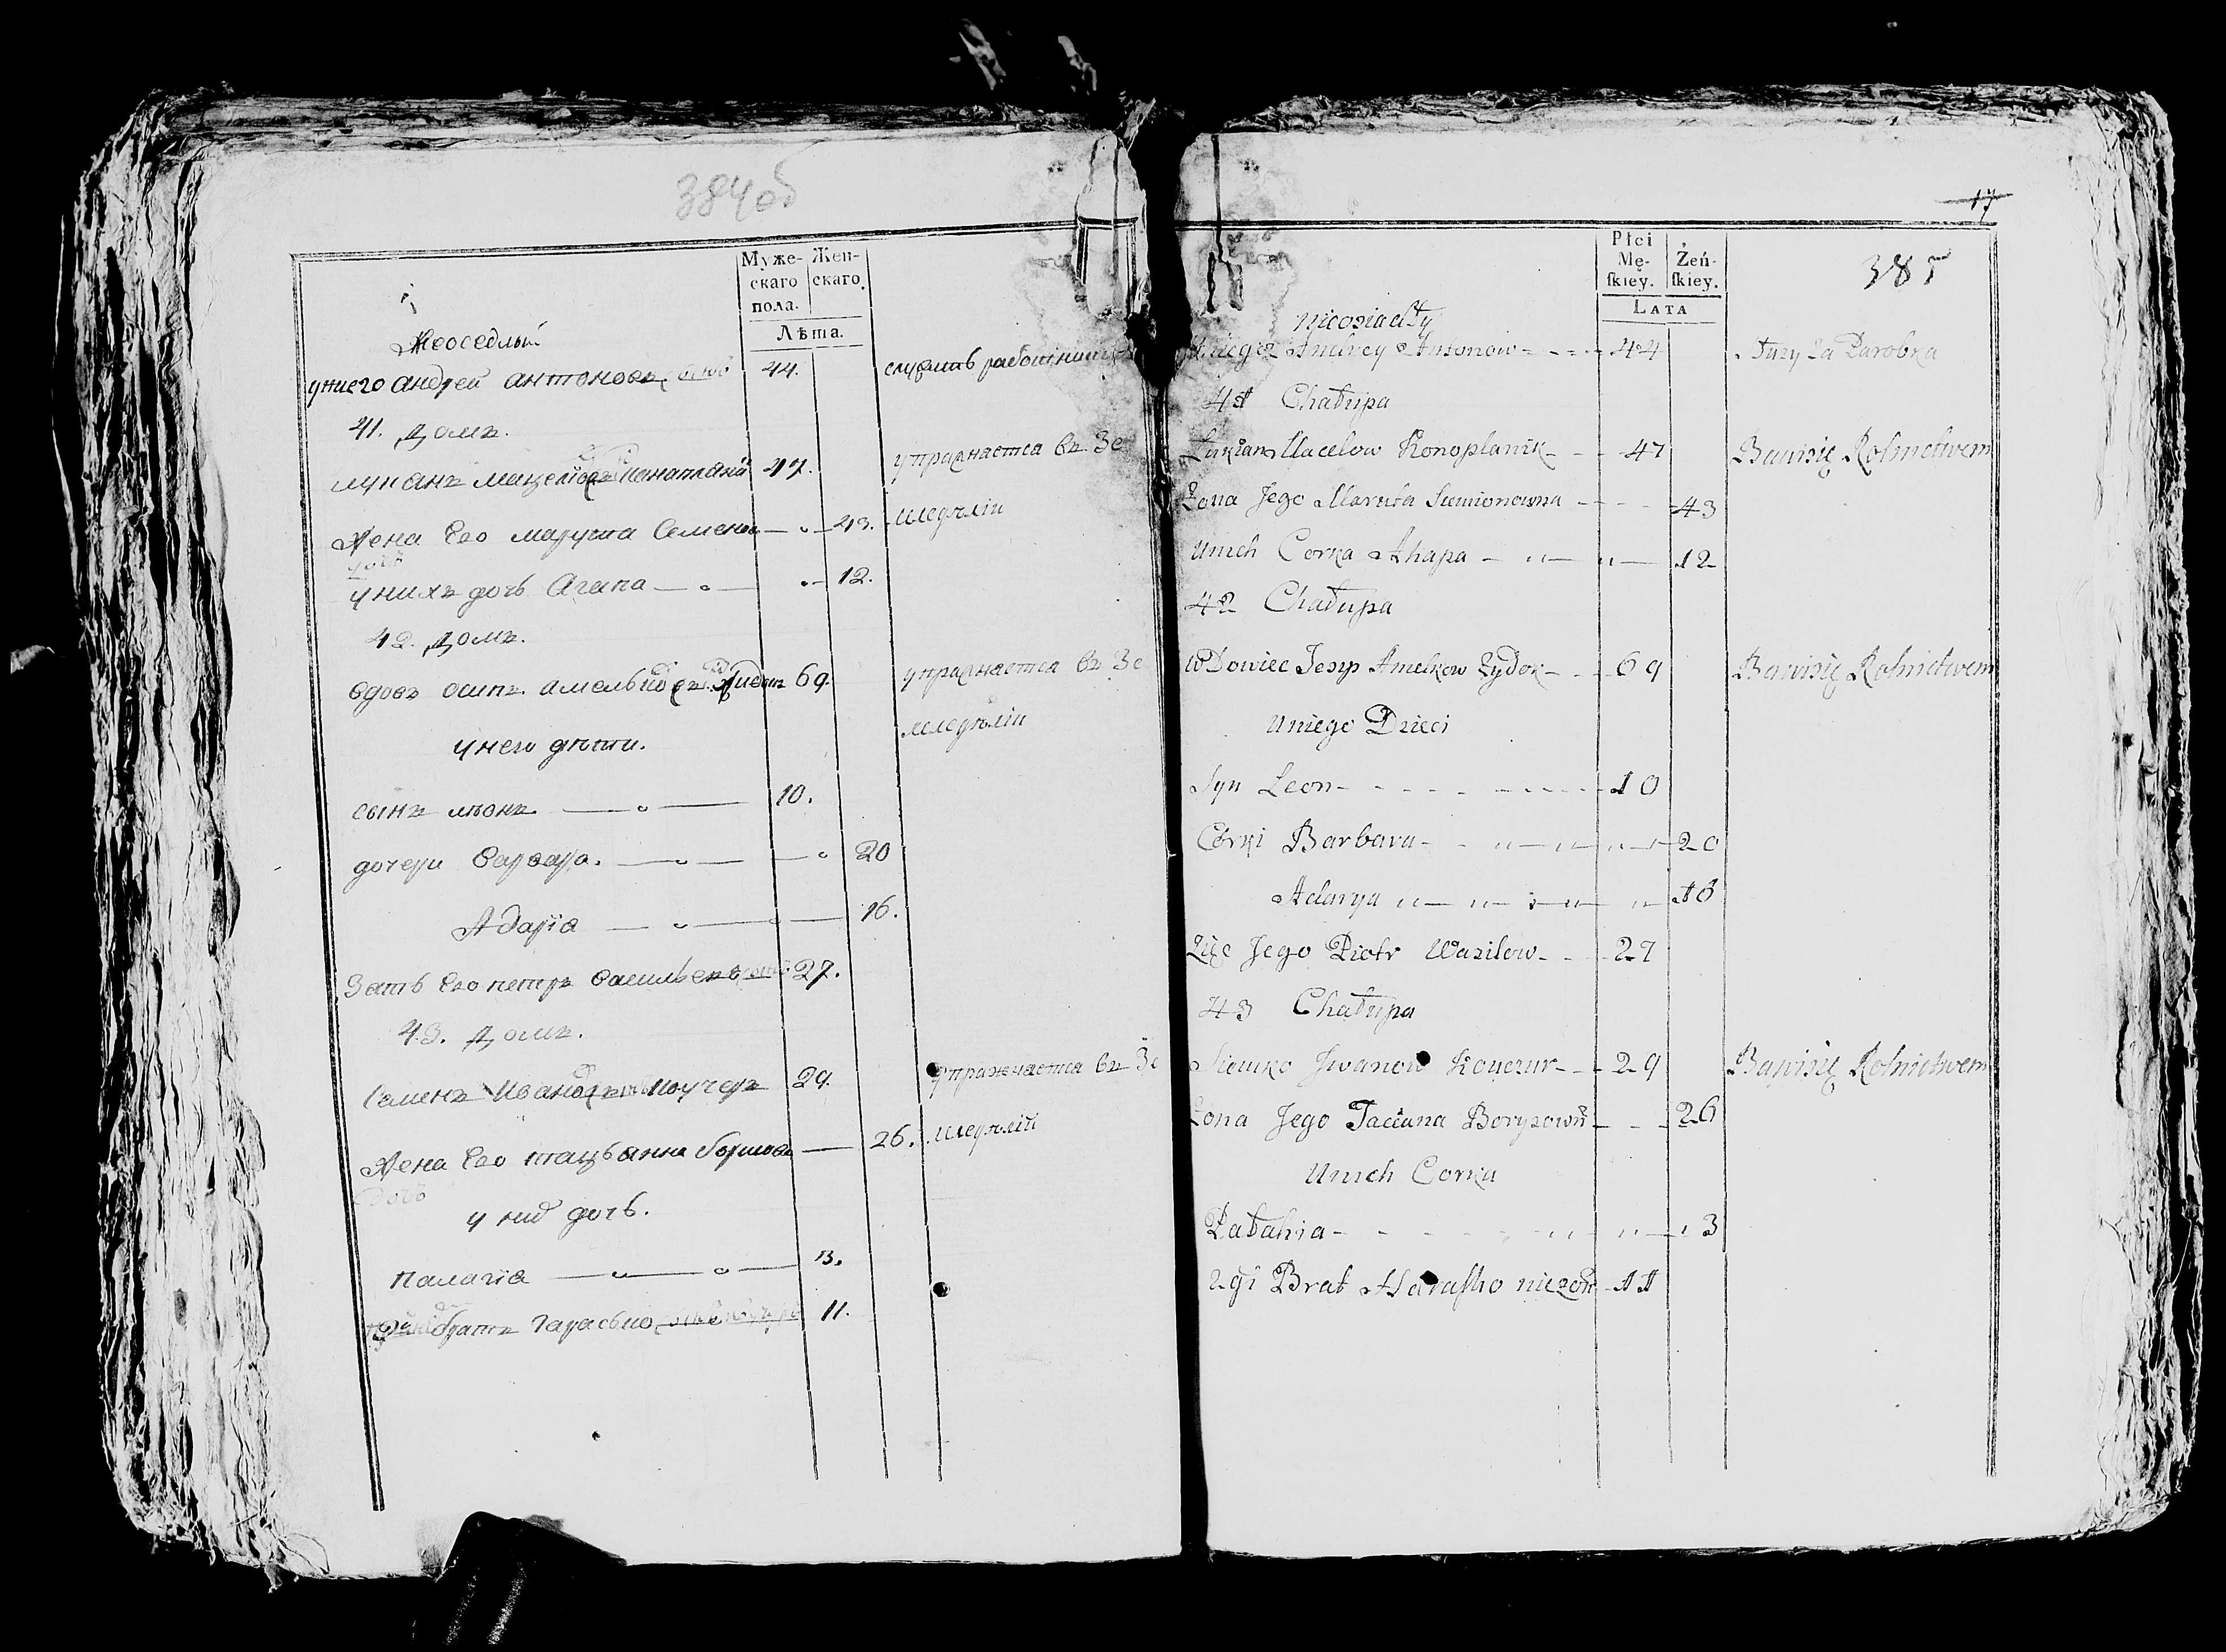 384об
Муже-
скаго
пола.
Жен-
скаго.
Лѣта.
Неоседлый
унего андрей антоновъ 44. служитъ
41. домъ.
43. упражнаетса въ Зе
Жена Его маруша Семено 43. мледѣлiи
унихъ дочь Агапа 12.
42. домъ.
вдовъ осипъ 69. упражнаетса въ Зе
унего дѣти. мледѣлiи
сынъ леонъ 10.
дочери варвара. 20
Адарiа 16.
Зять Его петръ 27.
43. домъ.
Семенъ 29. упражнаетса въ Зе
Жена Его 26. мледѣлiй
дочь
у них дочь.
палагiа 13.
братъ гарасько 11.
17
385
Płci
Mę-
ſkiey.
Żeń-
ſkiey.
LATA
nieosiadły
Uniego Andrey Antonow 44 służy za Parobka
41 Chałupa
Łukian Macelow Konoplanik 47 Bawisię Rolnictwem
Żona Jego Maruta Siemionowna 43
Unich Corka Ahapa 12
42 Chałupa
Wdowiec Josyp Amelkow Żydok 69 Bawisię Rolnictwem
Uniego Dzieci
Syn Leon 10
Córki Barbara 20
Adarya 16
Zięć Jego Piotr Wasilow 27
43 Chałupa
Siemko Jwanow 29 Bawisię Rolnictwem
Żona Jego Taciana Boryzown 26
Unich Corka
Pałahia 13
2gi Brat Harasko nieżon 11